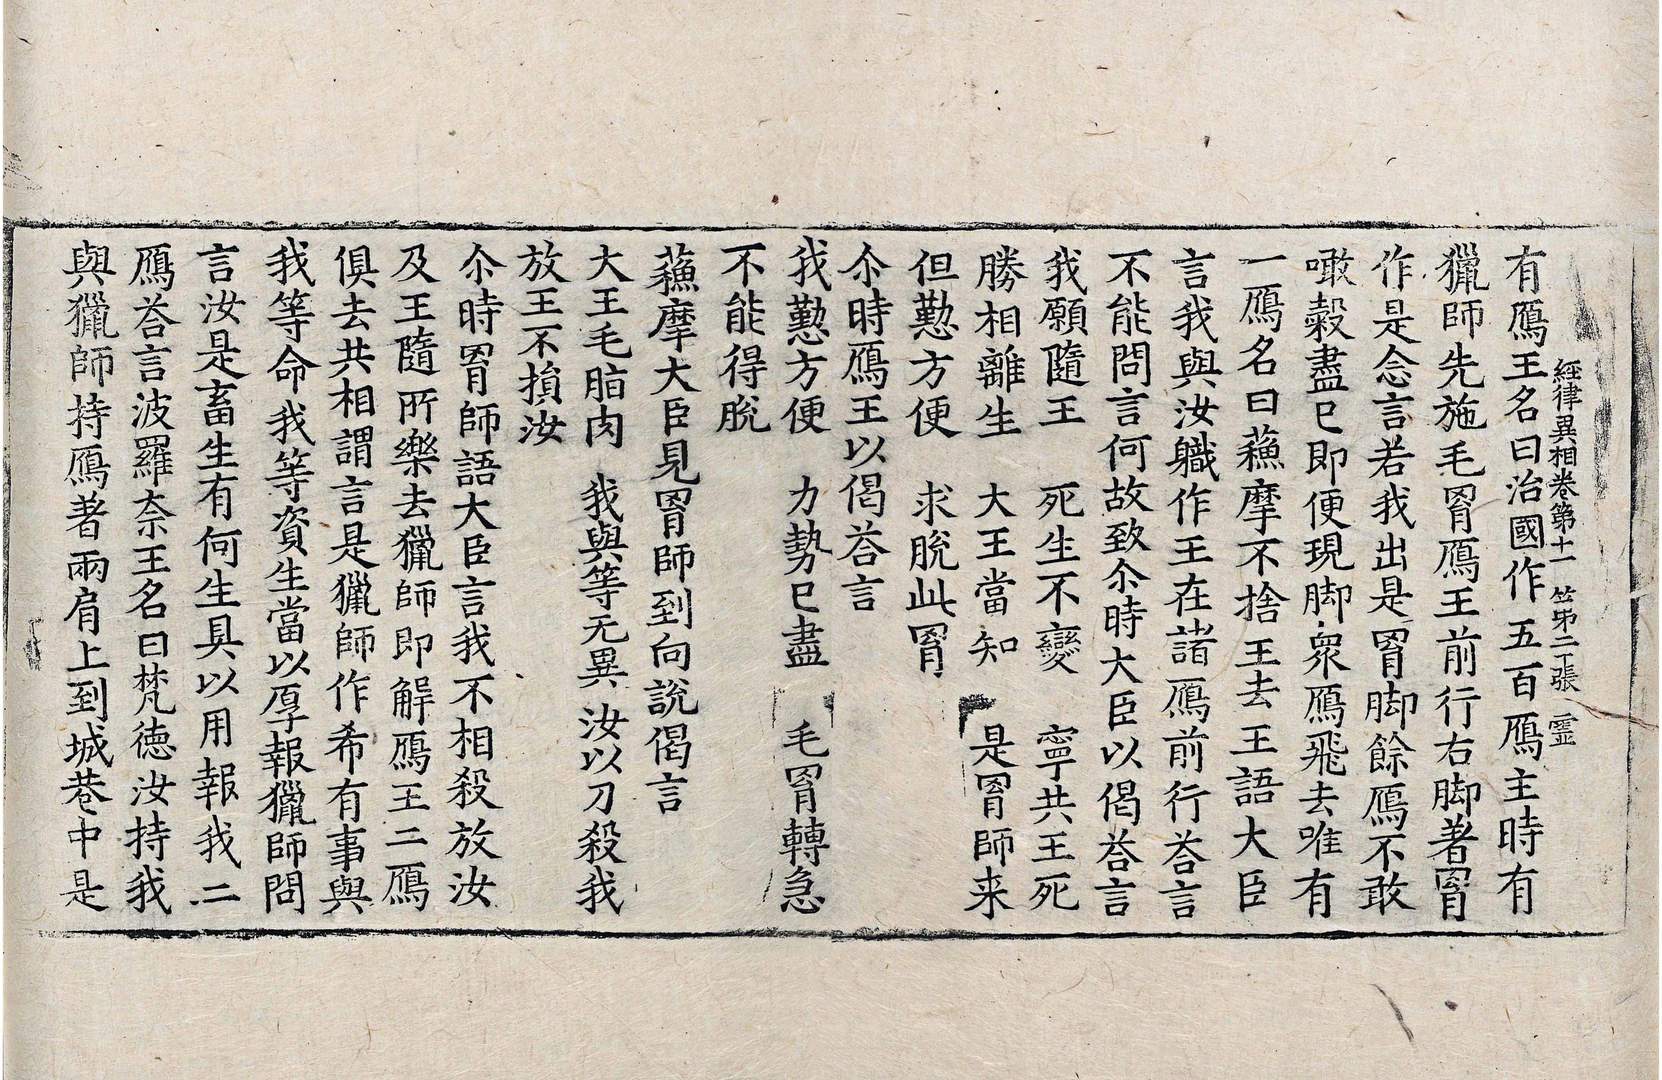 經律異相卷第十一 第二十張 靈
有鴈王名曰治國作五百鴈主時有
獵師先施毛罥鴈王前行右脚著罥
作是念言若我出是罥脚餘鴈不敢
噉穀盡已即便現脚衆鴈飛去唯有
一鴈名曰蘓摩不捨王去王語大臣
言我與汝軄作王在諸鴈前行荅言
不能問言何故致尒時大臣以偈荅言
我願隨王 死生不變 寧共王死
勝相離生 大王當知 是罥師来
但懃方便 求脫此罥
尒時鴈王以偈荅言
我懃方便 力勢已盡 毛罥轉急
不能得脫
蘓摩大臣見罥師到向說偈言
大王毛脂肉 我與等无異 汝以刀殺我
放王不損汝
尒時罥師語大臣言我不相殺放汝
及王隨所樂去獵師即解鴈王二鴈
俱去共相謂言是獵師作希有事與
我等命我等資生當以厚報獵師問
言汝是畜生有何生具以用報我二
鴈荅言波羅奈王名曰梵德汝持我
與獵師持鴈著兩肩上到城巷中是